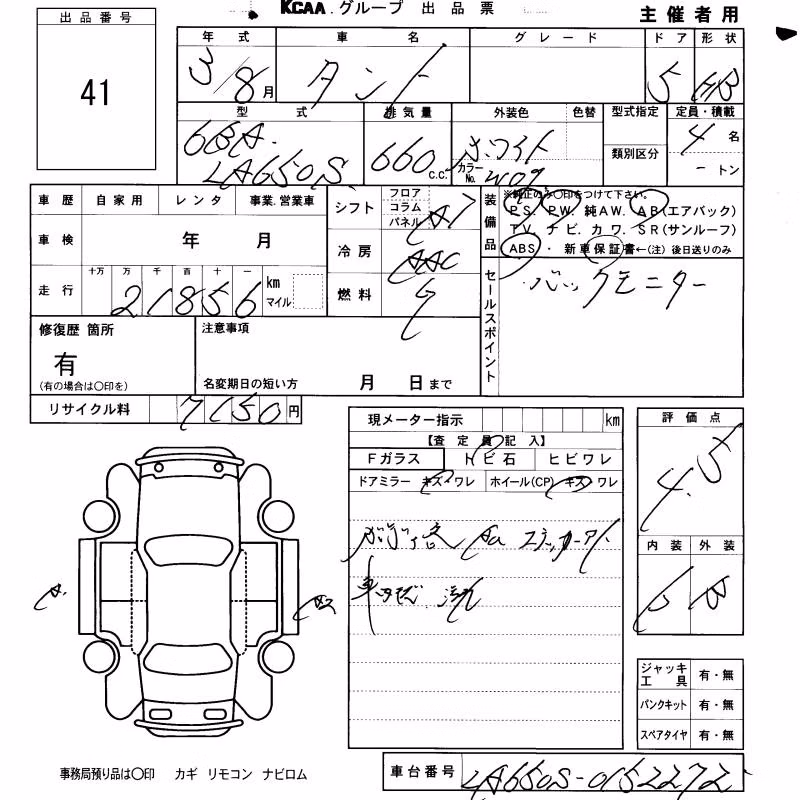 KCAA.グループ 出品票
主催者用
出品番号
41
年式 車名 グレード ドア 形状
3/8月 タント 5 HB
型式 排気量 外装色 色替 型式指定 定員・積載
6BA-
LA650S 660c.c. ホワイト カラーNo. W09 類別区分 4名
-トン
車歴 自家用 レンタ 事業.営業車
車検 年 月
走行 十万 万 千 百 十 一
21856 km マイル
シフト フロア コラム パネル AT
冷房 AAC
燃料 G
装備品 ※純正のみ○印をつけて下さい。
PS. PW. 純AW. AB(エアバック)
TV. ナビ. カワ. SR(サンルーフ)
ABS・ 新車保証書←(注)後日送りのみ
セールスポイント バックモニター
修復歴 箇所
有
(有の場合は○印を)
注意事項
名変期日の短い方 月 日まで
リサイクル料 7150円
現メーター指示 km
【査定員記入】
Fガラス トビ石 ヒビワレ
ドアミラー キズ・ワレ ホイール(CP) キズ・ワレ
評価点
4.5
内装 外装
B
ジャッキ工具 有・無
パンクキット 有・無
スペアタイヤ 有・無
事務局預り品は○印 カギ リモコン ナビロム
車台番号 LA650S-0152272